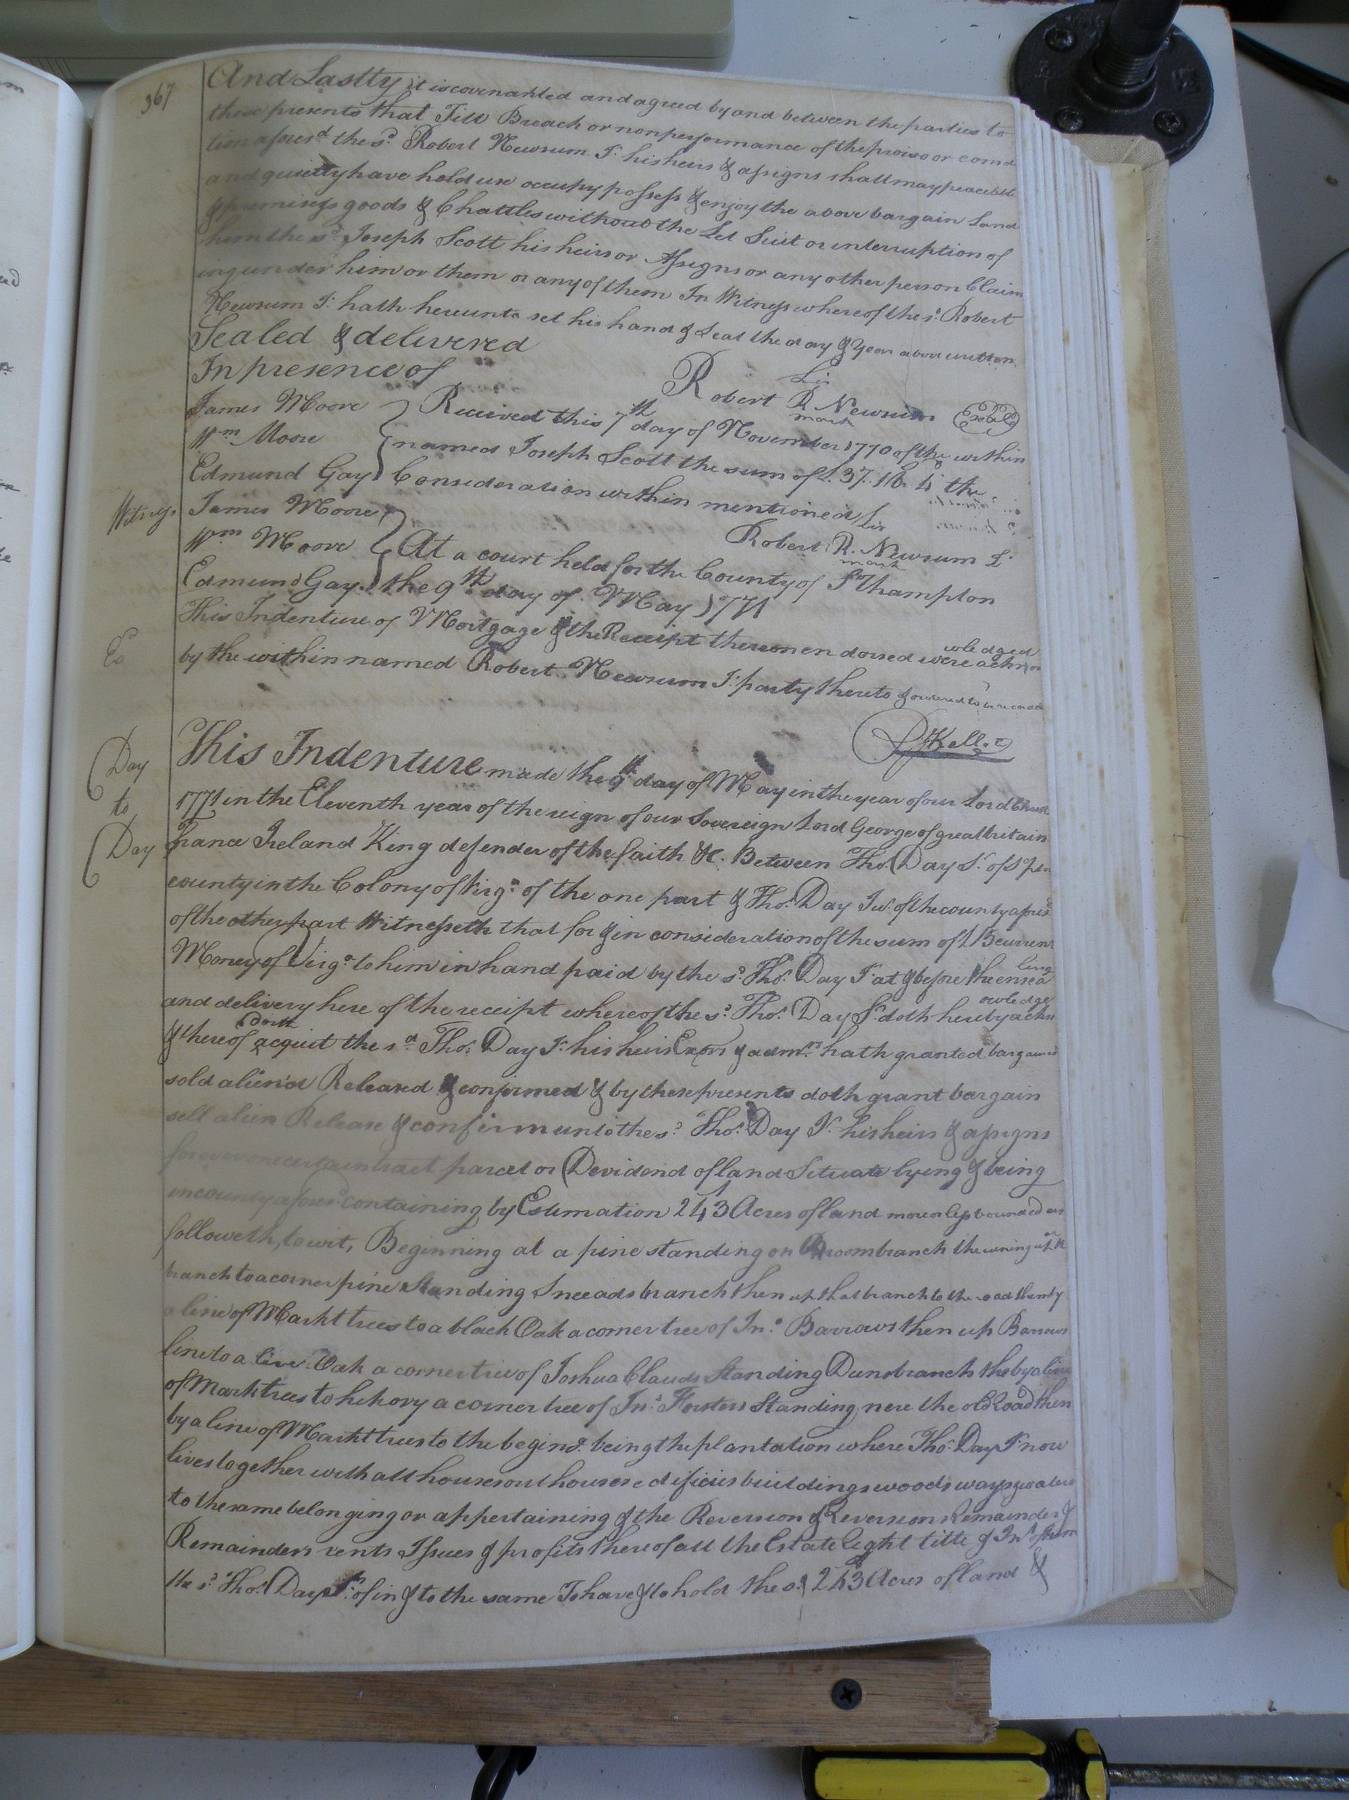 367
And Lastly it is covenanted and agreed by and between the parties to
these presents that Till Breach or nonperformance of the proviso or cond
tion afores.d the s.d Robert Newsum J.r his heirs & assigns shall may peaceabl
and quietly have hold use occupy possess & enjoy the above bargain Land
& premisses goods & Chattles without the Let Suit or interruption of
him the s.d Joseph Scott his heirs or Assigns or any other person Claim
ing under him or them or any of them In Witness whereof the s.d Robert
Newsum J.r hath hereunto set his hand & Seal the day & Year above written
Sealed & delivered
In presence of
his
Robert R Newsum Seal
mark
James Moore
Wm Moore
Edmund Gay
Received this 7th day of November 1770 of the within
named Joseph Scott the sum of £.37.16.4 the
Consideration within mentioned
his
Robert R. Newsum J.r
mark
Witness
James Moore
Wm Moore
Edmund Gay
At a court held for the County of So thampton
the 9th day of May 1771
This Indenture of Mortgage & the Receipt thereon endorsed were acknow
wledged
by the within named Robert Newsum J.r party thereto & ordered to be recorded
Ex
RKello
Day
to
Day
This Indenture made the 9th day of May in the year of our Lord Christ
1771 in the Eleventh year of the reign of our Sovereign Lord George of great britain
france Ireland King defender of the faith &c. Between Tho.s Day S.r of
county in the Colony of Virg.a of the one part & Tho.s Day Jur. of the county afores
of the other part Witnesseth that for & in consideration of the sum of
Money of Virg.a to him in hand paid by the s.d Tho.s Day J.r at & before the ensea
ling
and delivery here of the receipt whereof the s.d Tho.s Day S.r doth hereby ackn
owledge
& thereof doth acquit the s.d Tho.s Day J.r his heirs Exors & adm.rs hath granted bargained
sold alien'd Released & confirmed & by these presents doth grant bargain
sell alien Release & confirm unto the s.d Tho.s Day J.r his heirs & assigns
forever one certain tract parcel or Devidend of land Situate lying & being
in county afores.d containing by Estimation 243 Acres of land more or less bounded as
followeth, to wit, Beginning at a pine standing on branch the
branch to a corner pine Standing Sneeads branch then up that branch to the road then by
a line of Markt trees to a black Oak a corner tree of Jn.o Barrows then up Barrows
line to a live Oak a corner tree of Joshua Clauds Standing branch the by a line
of Markt trees to hickory a corner tree of Jn.o Standing nere the old Road then
by a line of Markt trees to the begin.g being the plantation where Tho.s Day J.r now
lives together with all houses outhouses edificies buildings woods ways waters
to the same belonging or appertaining & the Reversion & Reversions Remainder &
Remainders rents Issues & profits thereof all the Estate Right title &
the s.d Tho.s Day S.r of in & to the same To have & to hold the s.d 243 Acres of land &